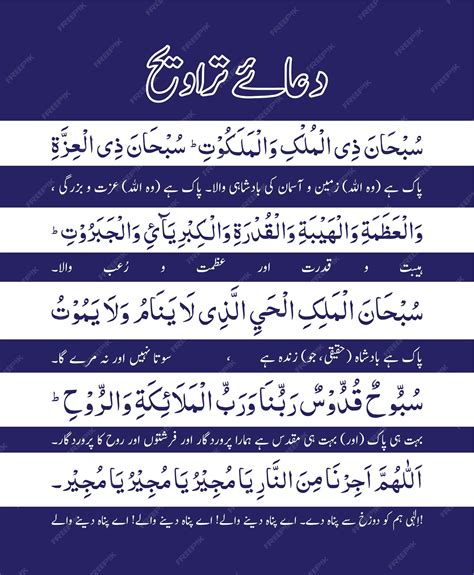 دعائے تراویح
سُبْحَانَ ذِی الْمُلْکِ وَالْمَلَکُوْتِ ؕ سُبْحَانَ ذِی الْعِزَّۃِ
پاک ہے (وہ اللہ) زمین و آسمان کی بادشاہی والا۔ پاک ہے (وہ اللہ) عزت و بزرگی ،
وَالْعَظَمَۃِ وَالْھَیْبَۃِ وَالْقُدْرَۃِ وَالْکِبْرِیَآئِ وَالْجَبَرُوْتِ ؕ
ہیبت و قدرت اور عظمت و رُعب والا۔
سُبْحَانَ الْمَلِکِ الْحَیِّ الَّذِی لَا یَنَامُ وَلَا یَمُوْتُ
پاک ہے بادشاہ (حقیقی، جو) زندہ ہے ، سوتا نہیں اور نہ مرے گا۔
سُبُّوحٌ قُدُّوْسٌ رَبُّنَا وَرَبُّ الْمَلَائِکَۃِ وَالرُّوْحِ ؕ
بہت ہی پاک (اور) بہت ہی مقدس ہے ہمارا پروردگار اور فرشتوں اور روح کا پروردگار۔
اَللّٰھُمَّ اَجِرْنَا مِنَ النَّارِ یَا مُجِیْرُ یَا مُجِیْرُ یَا مُجِیْر۔
الٰہی ہم کو دوزخ سے پناہ دے۔ اے پناہ دینے والے! اے پناہ دینے والے! اے پناہ دینے والے!